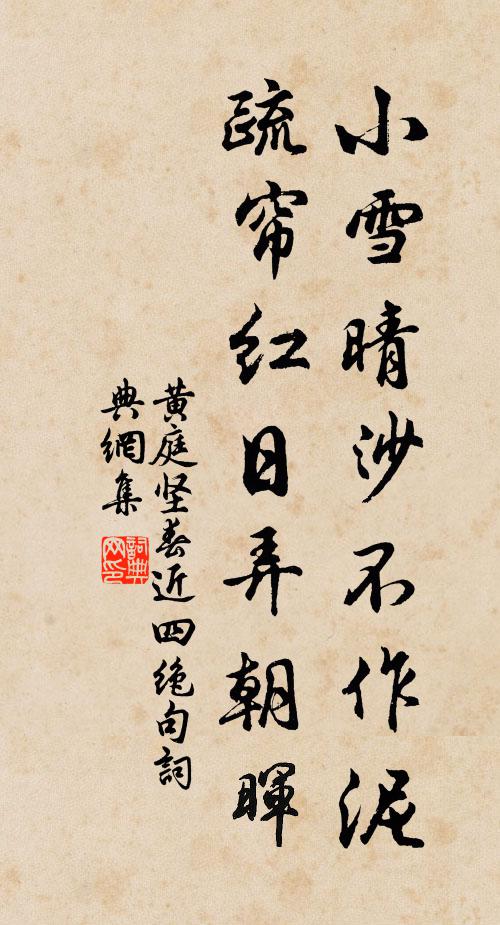 小雪晴沙不作泥
疏帘红日弄朝暉
黄庭坚春近四绝句詞
典網集
詞典网印